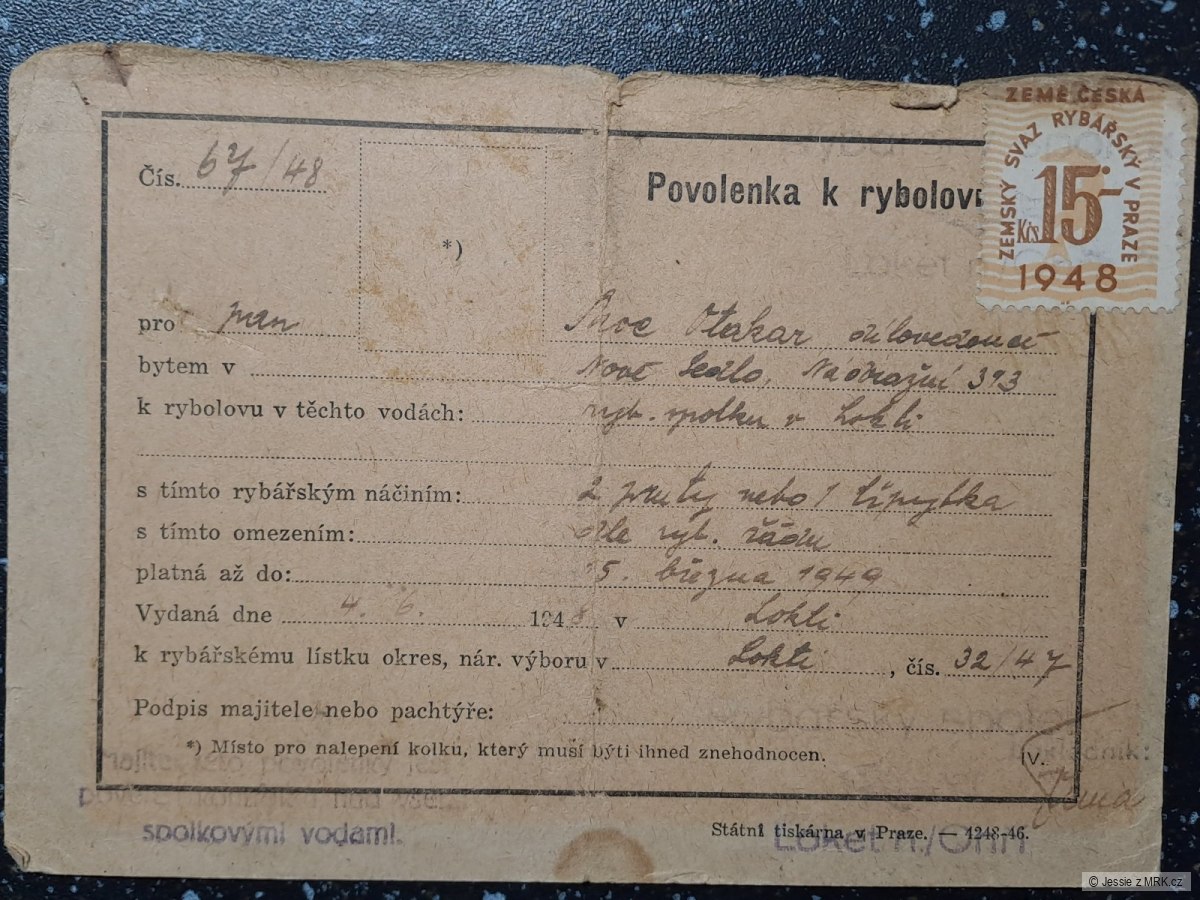 Čís. 67/48
Povolenka k rybolovu
ZEMĚ ČESKÁ
ZEMSKÝ SVAZ RYBÁŘSKÝ V PRAZE
Kčs 15·-
1948
*)
pro pan Otakar dílovedoucí
bytem v Nové Sedlo, Nádražní 393
k rybolovu v těchto vodách: ryb. spolku v Lokti
s tímto rybářským náčiním: 2 pruty nebo 1 třpytka
s tímto omezením: dle ryb. řádu
platná až do: 15. března 1949
Vydaná dne 4. 6. 1948 v Lokti
k rybářskému lístku okres, nár. výboru v Lokti, čís. 32/47
Podpis majitele nebo pachtýře:
*) Místo pro nalepení kolku, který musí býti ihned znehodnocen.
IV.
spolkovými vodami.
Státní tiskárna v Praze. — 4248-46.
Loket n./Ohří
© Jessie z MRK.cz